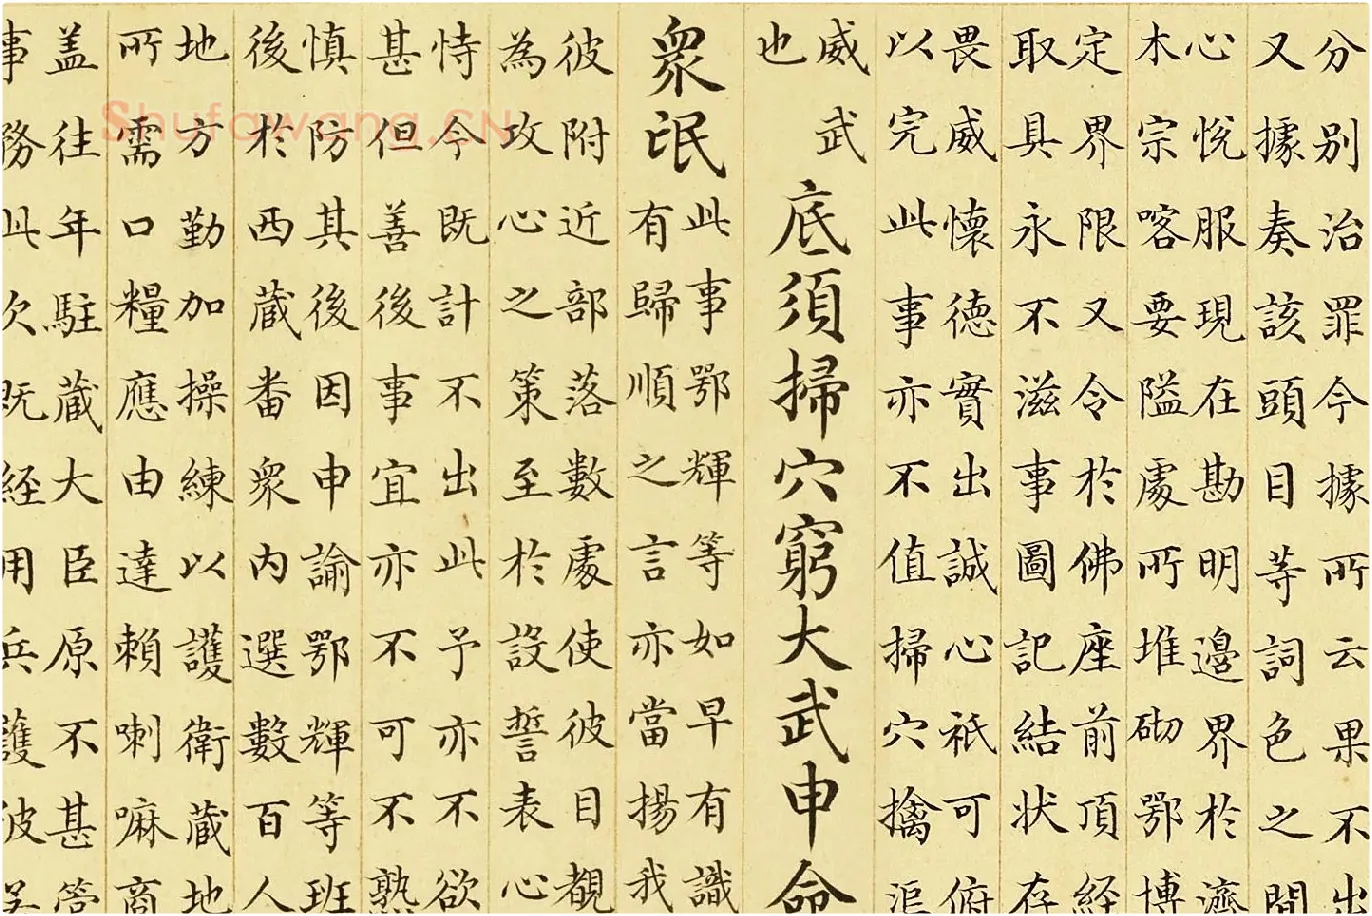 分別治罪今據所云果不出
又據奏該頭目等詞色之間
心悅服現在勘明邊界於濟
木宗喀要隘處所堆砌鄂博
定界限又令於佛座前頂経
取具永不滋事圖記結狀存
畏威懷德實出誠心祇可俯
以完此事亦不值掃穴擒渠
威武
也
底須掃穴窮大武申命
衆氓
此事鄂輝等如早有識
有歸順之言亦當揚我
彼附近部落數處使彼目覩
為攻心之策至於設誓表心
恃今既計不出此予亦不欲
甚但善後事宜亦不可不熟
慎防其後因申諭鄂輝等班
後於西蔵番衆內選數百人
地方勤加操練以護衛蔵地
所需口糧應由達賴喇嘛商
盖往年駐蔵大臣原不甚管
事務此次既経用兵護彼
Shufawang.CN